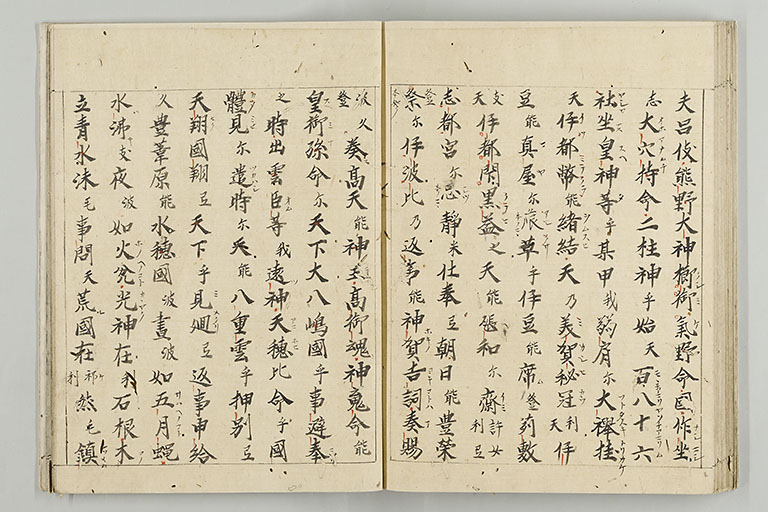 夫呂伎熊野大神櫛御氣野命國作坐
志大穴持命二柱神乎始天百八十六
社坐皇神等乎某甲我弱肩尓大襷挂
天伊都幣能緒結天乃美賀秘冠利天伊
豆能真屋尓麁草乎伊豆能席登苅敷
支天伊都閇黒益之天能𤭖和尓齋許母利弖
志都宮尓忌静米仕奉弖朝日能豊榮
登尓伊波比乃返事能神賀吉詞奏賜
波久登奏高天能神王高御魂神魂命能
皇御孫命尓天下大八嶋國乎事避奉
之時出雲臣等我遠神天穂比命乎國
體見尓遣時尓天能八重雲乎押別弖
天翔國翔弖天下乎見廻弖返事申給
久豊葦原能水穂國波晝波如五月蠅
水沸支夜波如火瓫光神在利石根木
立青水沫毛事問天荒國在祁利然毛鎮